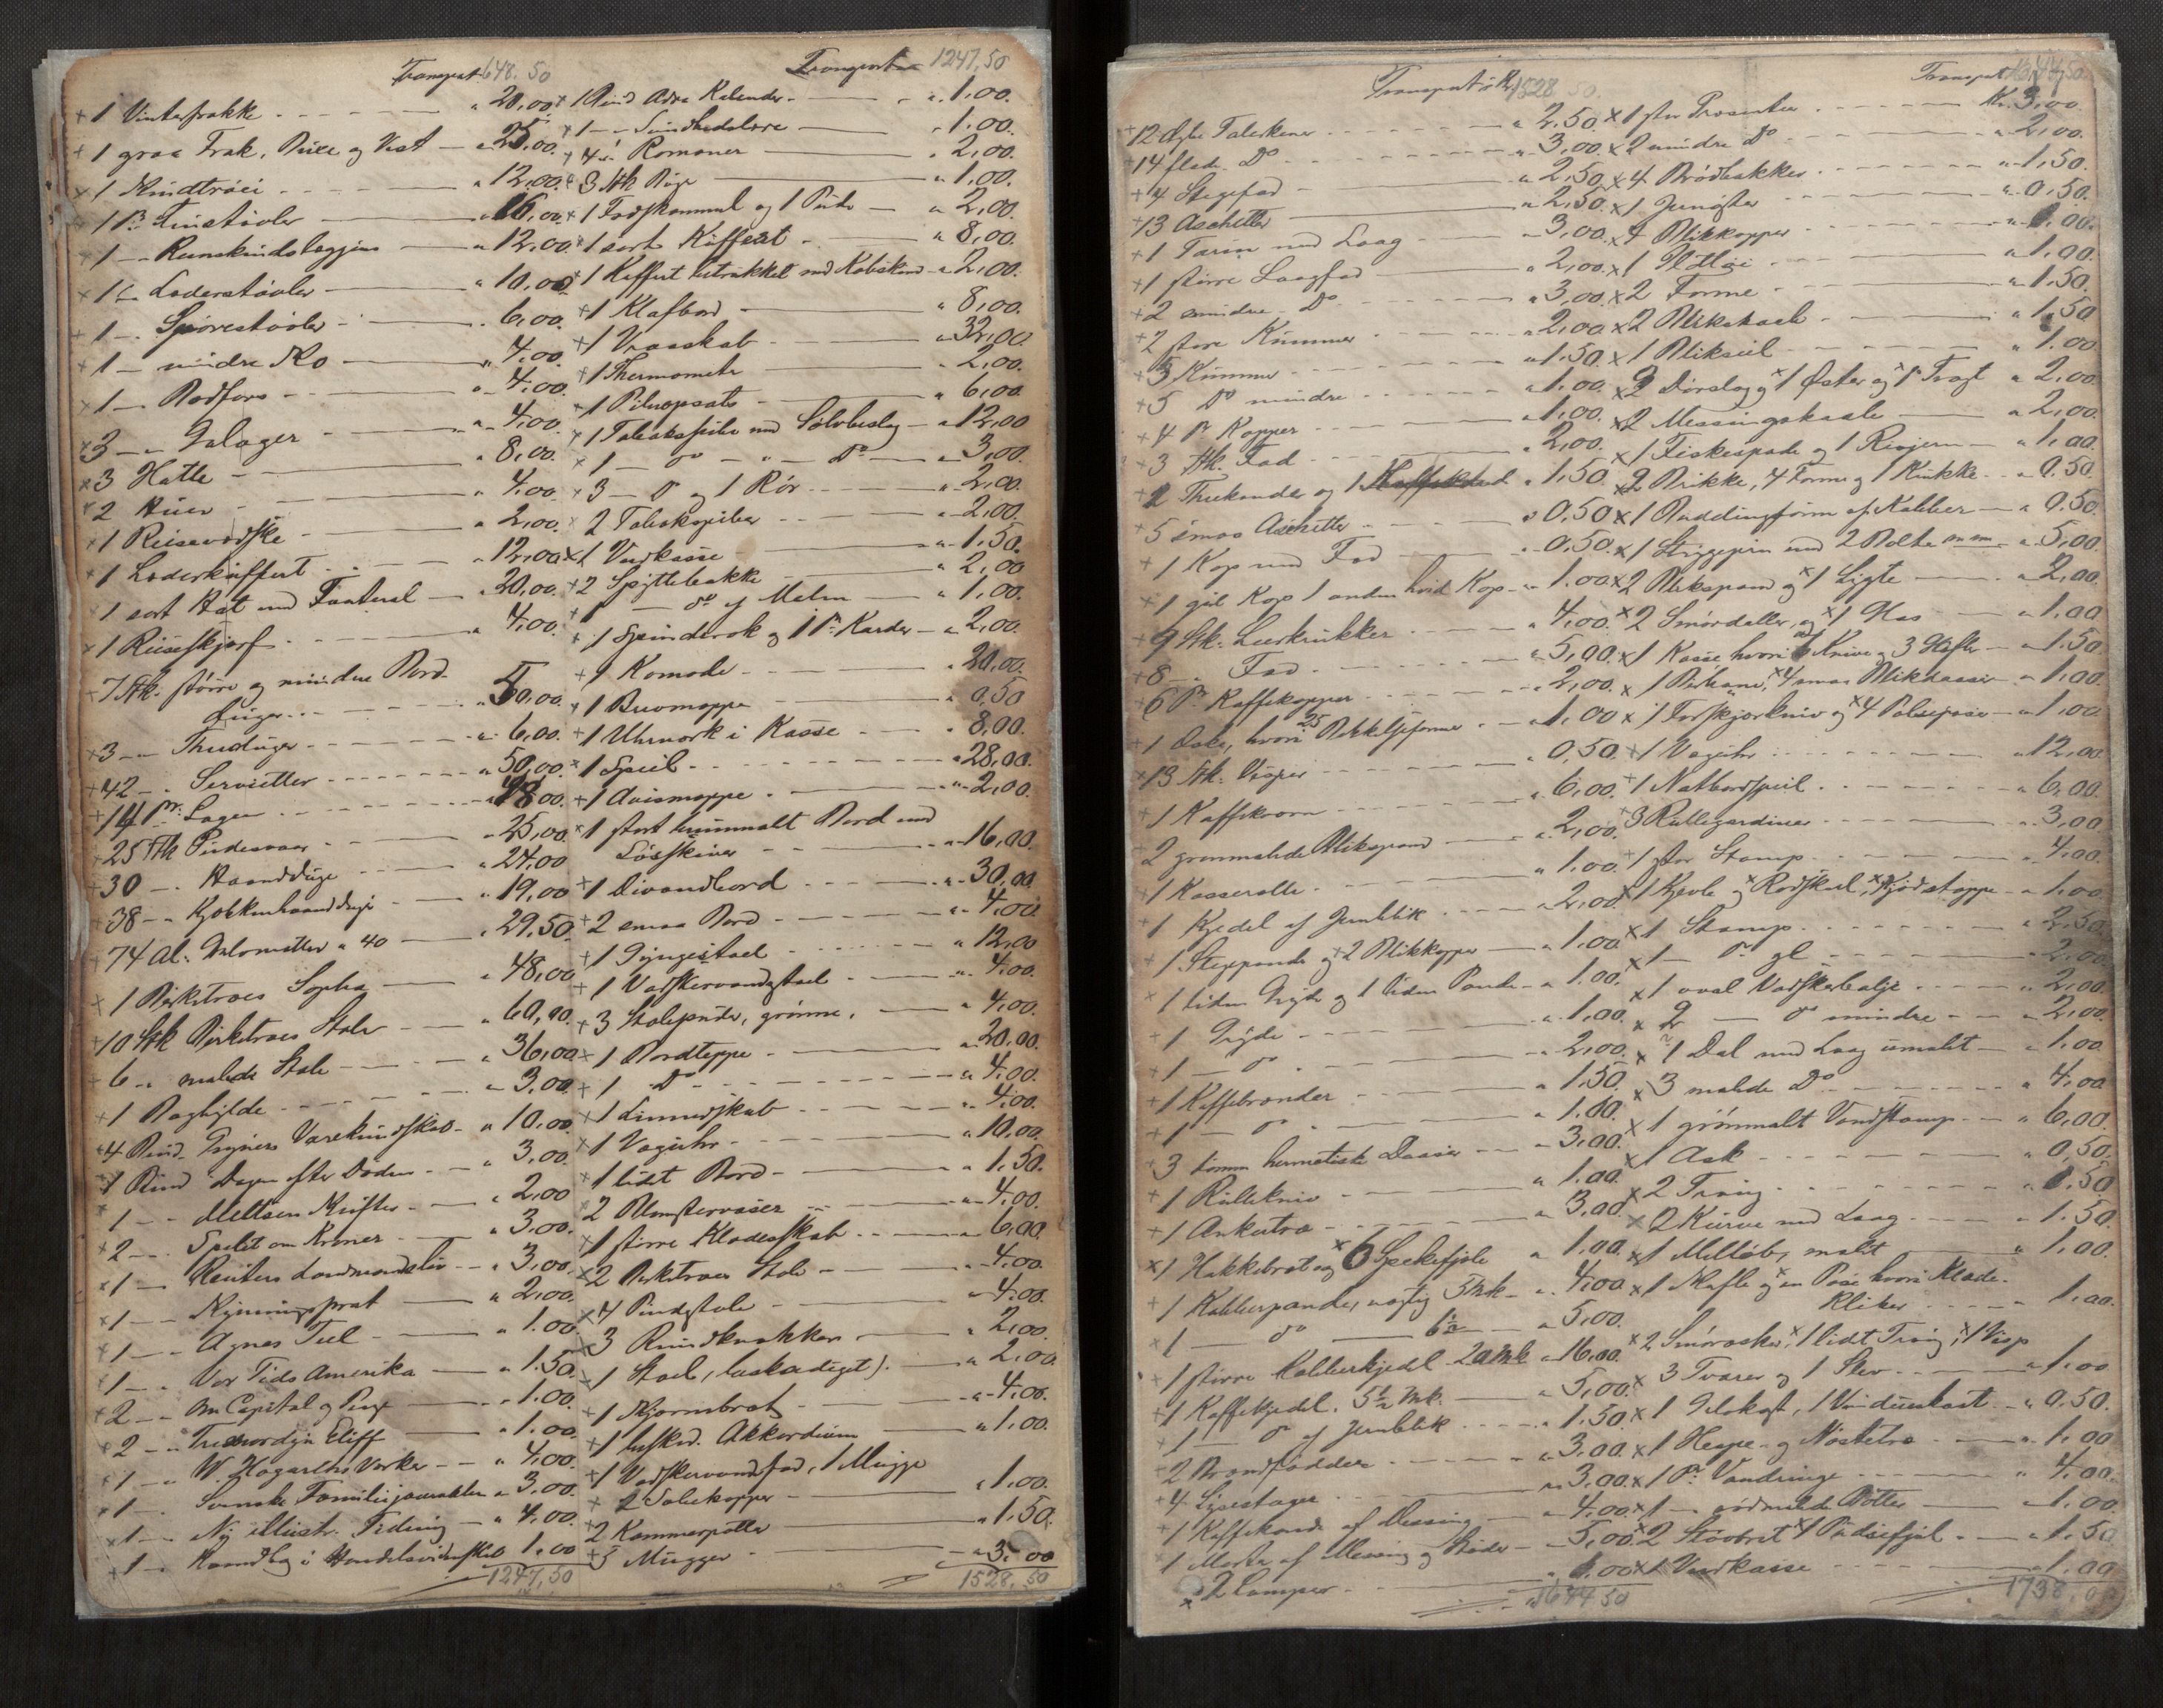 Transport 648.50
+ 1 Vinterfrakke " 20,00
+ 1 graa Frak, Buxe og Vest " 25,00
× 1 Skindtröie " 12,00
× 1 Pr. Finstövler " 16,00
× 1 — Renskindsleggins " 12,00
× 1 " Læderstövler " 10,00
× 1 — Sjöverstövler " 6,00
× 1 — mindre Do " 4,00
× 1 — Bodfors " 4,00
×3 — Galager " 4,00
×3 Hatte " 8,00
×2 Huer " 4,00
×1 Reisevadske " 2,00
×1 Læderkuffert " 12,00
× 1 sort Hat med Fouteral " 20,00
×1 Reiseskjerf " 4,00
×7 Stk. större og mindre Bord-
duger " 50,00
×3 — Theduger " 6,00
+42 — Servietter " 50,00
+14 Pr. Lagen " 98,00
+25 Stk Pudevaar " 25,00
+30 — Haandduge " 24,00
+38 — Kjökkenhaandduge " 19,00
+74 Al. Gulvmatter a 40 " 29,50
× 1 Birketræs Sopha " 48,00
+10 Stk Birketræs Stole " 60,00
+6 — malede Stole " 36,00
+1 Boghylde " 3,00
+4 Bind Gyners Værekundskab " 10,00
×1 Bind Dagen efter Döden " 3,00
× 1 — Meltzers Skrifter " 2,00
×2 — Spillet om Kroner " 3,00
×1 — Reuters Landmandsliv " 3,00
×1 — Skjemtsprat " 2,00
×1 — Agnes Tiel " 1.00
×1 — Vor Tids Amerika " 1.50
+2 — Om Capital og Penge " 1.00
+2 — Eliff " 1.00
+1 — W. Hogarths Værker " 4,00
×1 — Svenske Familiejournalen " 3,00
×1 — Ny illustr. Tidning " 4,00
×1 — Haandbog i Handelsvidenskab 1,00
1247,50
Transport 1247,50
× 1 Bind Kalender " 1.00
×1 — Sundhedslære " 1.00
× 4 Romaner " 2,00
× 3 Stk Böger " 1.00
× 1 Fodskammel og 1 Pude " 2,00
× 1 sort Kuffert " 8,00
× 1 Kuffert betrukket med Kobskind " 2,00
× 1 Klafbord " 8,00
+1 Vraaskab " 32,00
+1 Thermometer " 2,00
×1 Pibeopsats " 6,00
× 1 Tobakspibe med Sölvbeslag " 12,00
× 1 — do — " — Do " 3,00
× 3 — Do og 1 Rör " 2,00
× 2 Tobakspiber " 2,00
×1 Vedkasse " 1.50
+2 Spyttebakke " 2,00
+1 — do af Malm " 1,00
+1 Spinderok og 1 Pr. Karder " 2,00
+1 Komode " 20,00
× 1 Brevmappe " 0,50
+1 Uhrverk i Kasse " 8,00
×1 Speil " 28,00
+1 Avismappe " 2,00
×1 stort brunmalt Bord med
Lösskiver " 16,00
+1 Divandbord " 30,00
+2 smaa Bord " 4,00
+1 Gyngestoel " 12,00
+1 Vadskevandsstoel " 4,00
+3 Stolepuder, grönne, " 4,00
+1 Bordteppe " 20,00
+1 Do " 4,00
×1 Linnedskab " 4,00
×1 Vægühr " 10,00
×1 lidet Bord " 1,50
×2 Blomstervaser " 4,00
×1 större Klædesskab " 6,00
×2 Birketræs Stole " 4,00
×4 Pindstole " 4,00
×3 Rundkrakker " 2,00
×1 Stoel, (beskadiget) " 2,00
+1 Skjermbræt " 4,00
+1 beskad. Akkordium " 1,00
+1 Vadskevandsfad, 1 Mugge
× 2 Sæbekopper " 1,00
×2 Kammerpotte " 1,50
+5 Mugger " 3,00
1528,50
Transport Kr 1528.50
+12 dybe Talerkener " 2,50
+14 flade Do " 3,00
+4 Stegefad " 2,50
+13 Aschetter " 2,50
+1 Tarin med Laag " 3,00
×1 större Laagfad " 2,00
×2 mindre Do " 3,00
+2 store Kummer " 2,00
×3 Kummer " 1.50
×5 Do mindre " 1.00
+4 Pr Kopper " 1.00
+3 Stk. Fad " 2,00
+2 Theekander og 1 " 1,50
+5 smaa Aschetter " 0,50
+1 Kop med Fad " 0,50
+1 gul Kop 1 anden hvid Kop " 1.00
+9 Stk. Leerkrukker " 4,00
+8 — Fad " 5,00
+6 Pr Kaffekopper " 2,00
+1 Öske, hvori 25 Bekkeljeforme " 1,00
+13 Stk. Visper " 0,50
×1 Kaffekværn " 6,00
+2 grönmalede Blikspand " 2,00
+1 Kasserolle " 1.00
+1 Kjedel af Jernblik " 2,00
+1 Stegepande og 2 Blikkopper " 1,00
× 1 liden Gryde og 1 liden Pande " 1.00
+1 Gryde " 1,00
×1 — do " 2,00
+1 Kaffebrænder " 1.50
+1 — do " 1.00
×3 tomme hermetiske Daaser " 3,00
×1 Rullekniv " 1.00
×1 Ankertræ " 3,00
×1 Hakkebræt og ×6 Spekefjöle " 1,00
× 1 Kobberpande, vægtig 5 Mk " 4,00
×1 — do — 6½ " 5,00
× 1 större Kobberkjedl 20 Mk " 16,00
×1 Kaffekjedel. 5½ Mk. " 5,00
+1 — do af Jernblik " 1.50
+2 Brandfödder " 3,00
+4 Lysestager " 3,00
+1 Kaffekande af Messing " 4,00
+1 Morter af Messing og Stöder " 5,00
× 2 Lamper " 6,00
1644 50
Transport Kr 1644,50
×1 stor Præsenter Kr. 3,00
×2 mindre Do " 2,00
×4 Brödbakker " 1,50
×1 " 0,50
×4 Blikkopper " 1,00
×1 " 1,00
×2 Forme " 1.50
×2 " 1,50
×1 Blikseil " 1.00
×2 Dörslag og ×1 Öster og 1 Tragt " 2,00
×2 Messingskaale " 2,00
×1 Fiskespade og 1 Rivjern " 1,00
×2 Brikke, 4 Forme og 1 Krukke " 0.50
×1 Puddingform af Kobber " 0.50
×1 Strygejern med 2 Bolte " 5,00
×2 Blikspand og ×1 Lygte " 2,00
×2 Smördaller, og ×1 Glas " 1,00
×1 Kasse hvori 6 Knive og 3 Gafler " 1.50
× 1 ×4 smaa Blikdaaser " 1,00
× 1 Forskjærkniv og ×4 Pölsepose " 1,00
+1 Vægühr " 12,00
+1 Natbordspeil " 6,00
+3 Rullegardiner " 3,00
+1 stor Stamp " 4,00
×1 Kjevle og × Rodskuel, × Kjödstappe " 1,00
×1 Stamp " 2,50
×1 — do gl " 2,00
×1 oval Vadskebalje " 2,00
×2 — do mindre " 2,00
× 1 Dal med Laag umalet " 1.00
×3 malede Do " 4,00
×1 grönmalt Vandstamp " 6,00
×1 Ask " 0,50
×2 Traug " 1.50
×2 Kurve med Laag " 1.50
×1 Meltöbe, malet " 1,00
×1 og en Pose hvori Klæde-
kliber " 1,00
×2 Smörasker, ×1 lidt Traug, ×1 Visp
× 3 Tvarer og 1 Slev " 1,00
×1 Gulvkost, 1 Vindueskost " 0.50
×1 Hespe- og Nöstetræ " 1,00
×1 Pr Vandringe " 4,00
×1 — rödmalede Bötter " 1,00
×2 Stövbret ×1 Pudsefjöl " 1.50
×1 Vedkasse " 1,00
1738,00